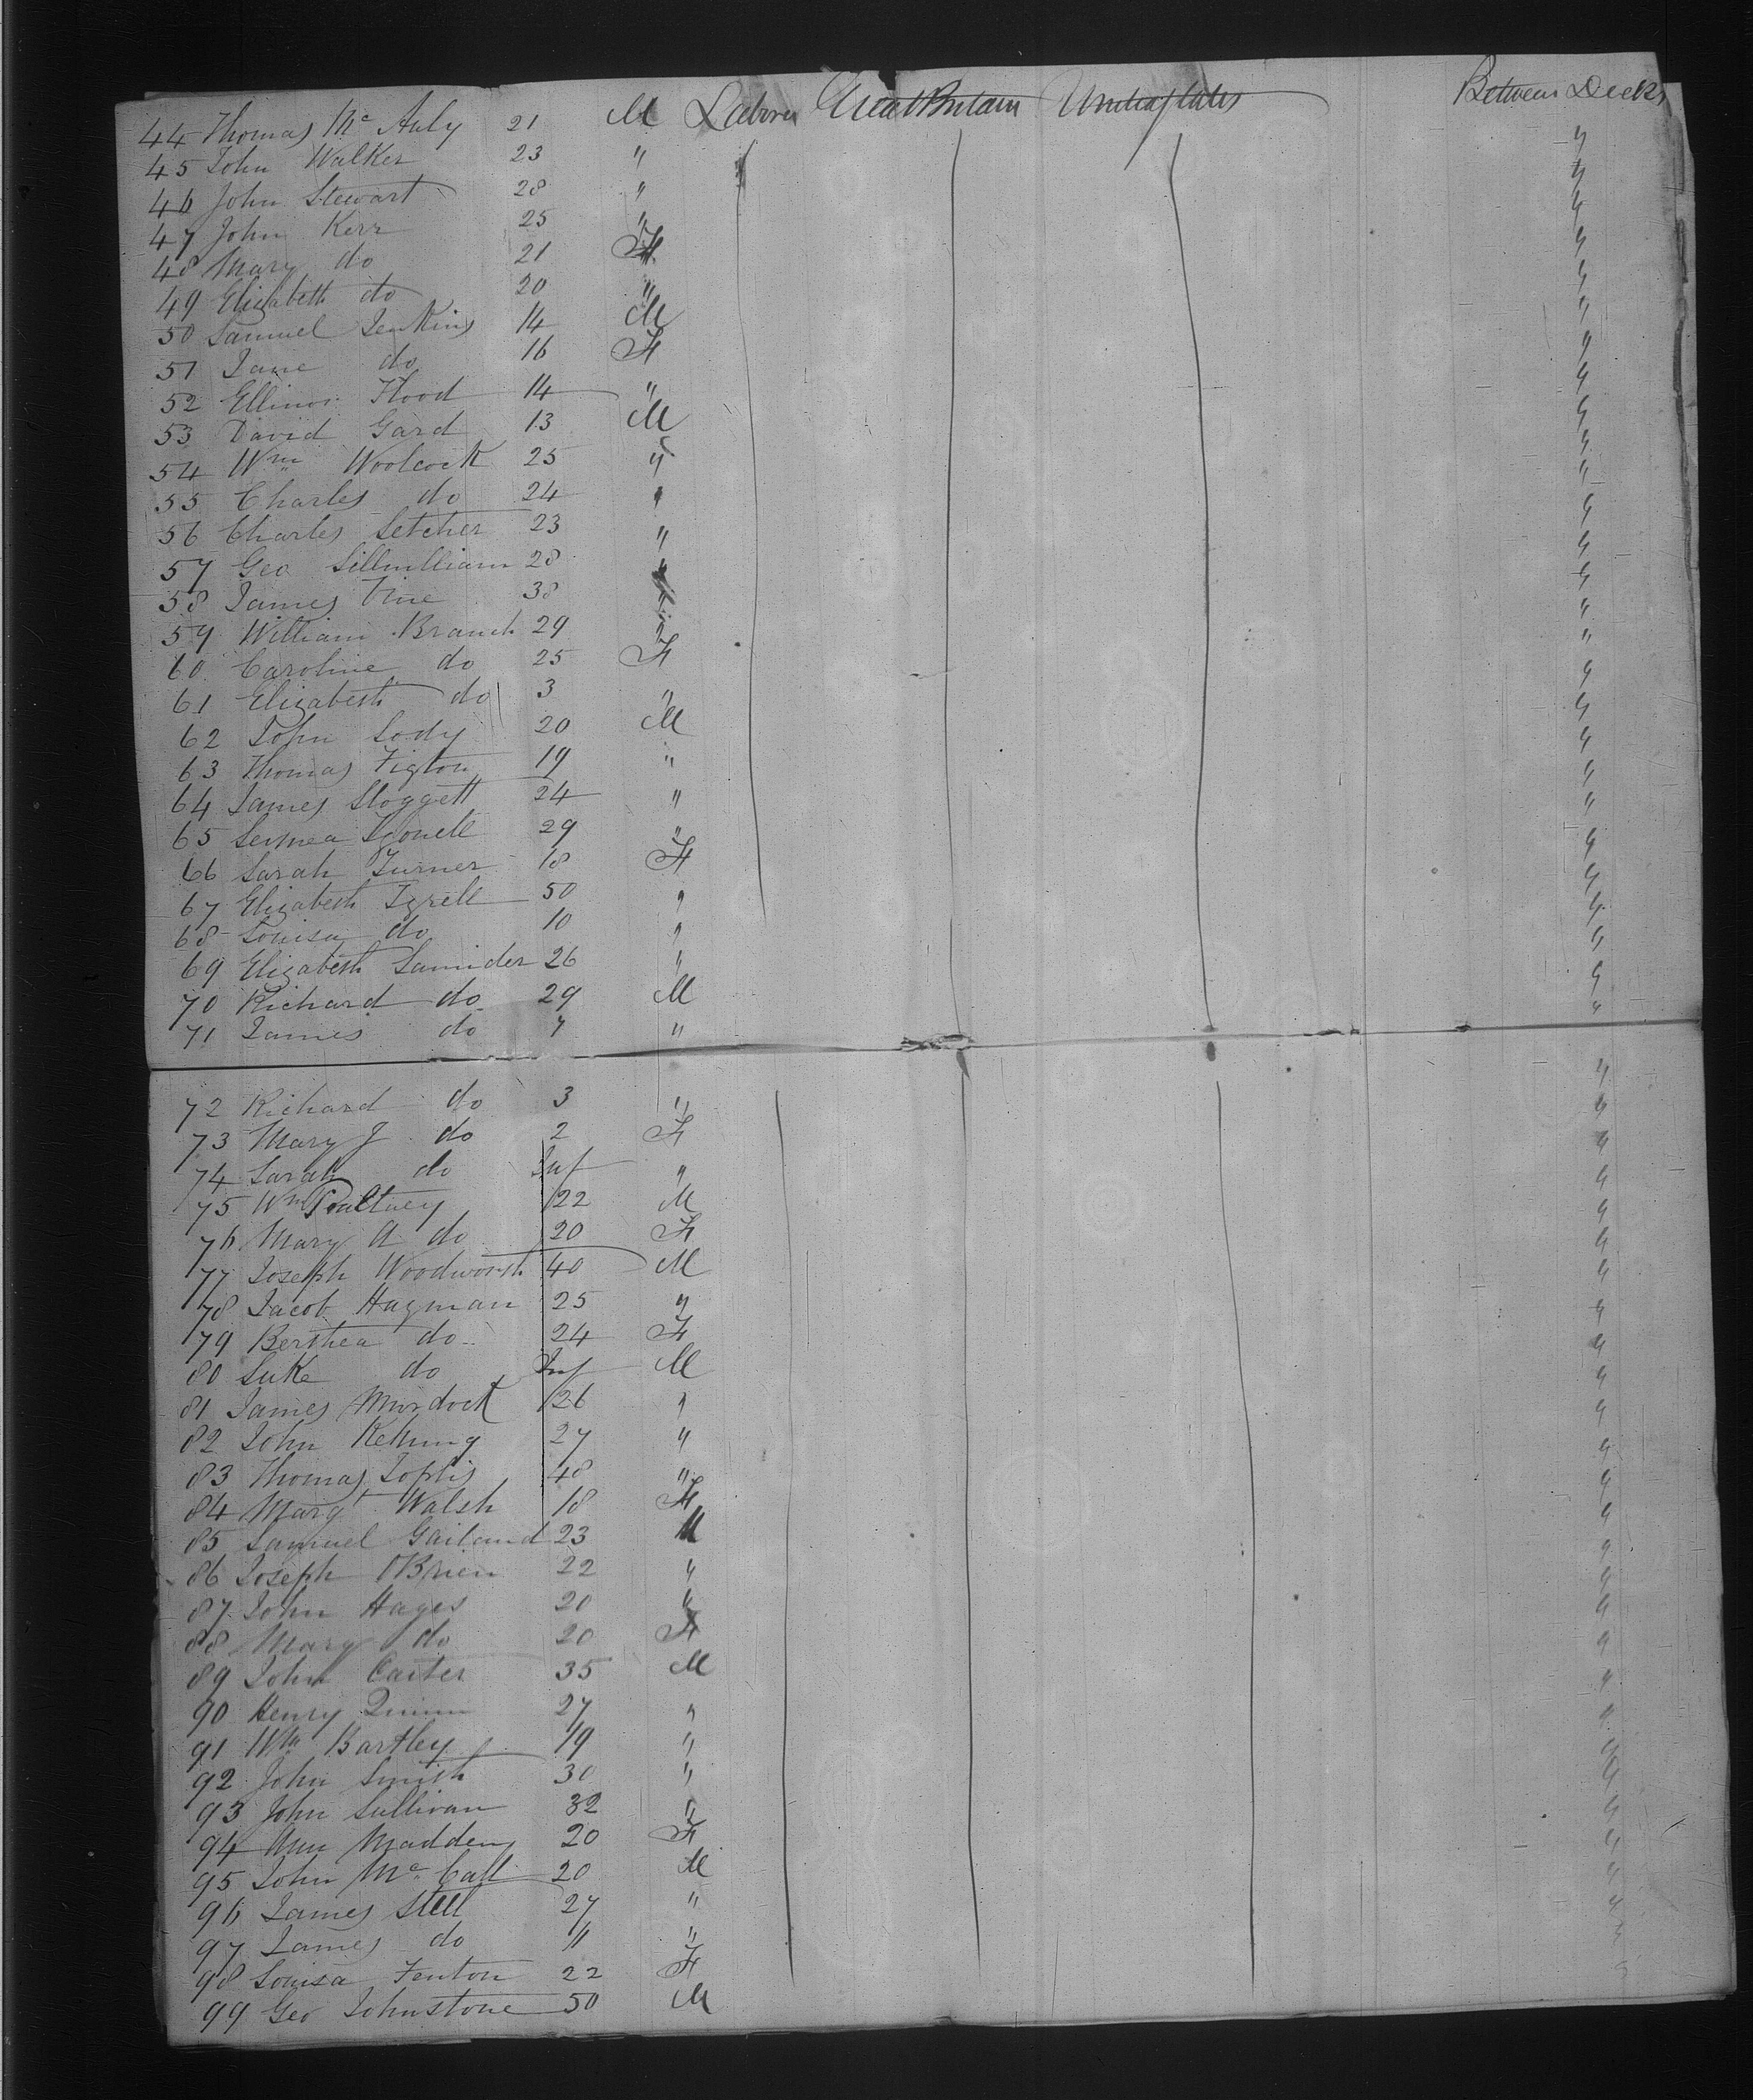 44 Thomas Mc Auly 21 M Laborer Great Britain United States Between Decks
45 John Walker 23 " "
46 John Stewart 28 " "
47 John Kerr 25 " "
48 Mary do 21 F "
49 Elizabeth do 20 " "
50 Samuel Jenkins 14 M "
51 Jane do 16 F "
52 Ellinor Flood 14 " "
53 David Gard 13 M "
54 Wm Woolcock 25 " "
55 Charles do 24 " "
56 Charles Letcher 23 " "
57 Geo 28 " "
58 James Vine 38 " "
59 William Branch 29 " "
60 Caroline do 25 F "
61 Elizabeth do 3 " "
62 John Sody 20 M "
63 Thomas Figton 19 " "
64 James Sloggett 24 " "
65 29 " "
66 Sarah Turner 18 F "
67 Elizabeth Tyrell 50 " "
68 Louisa do 10 " "
69 Elizabeth Saunder 26 " "
70 Richard do 29 M "
71 James do 7 " "
72 Richard do 3 " "
73 Mary J do 2 F "
74 Sarah do Inf " "
75 Wm Poultney 22 M "
76 Mary A do 20 F "
77 Joseph Woodworth 40 M "
78 Jacob Hagman 25 " "
79 Berthea do 24 F "
80 Luke do Inf M "
81 James Murdock 26 " "
82 John 27 " "
83 Thomas Joplis 48 " "
84 Margt Walsh 18 F "
85 Samuel Garland 23 M "
86 Joseph OBrien 22 " "
87 John Hayes 20 " "
88 Mary do 20 F "
89 John Carter 35 M "
90 Henry Quinn 27 " "
91 Wm Bartley 19 " "
92 John Smith 30 " "
93 John Sullivan 32 " "
94 Ann Madden 20 F "
95 John Mc Call 20 M "
96 James Stell 27 " "
97 James do 11 " "
98 Louisa Fenton 22 F "
99 Geo Johnstone 50 M